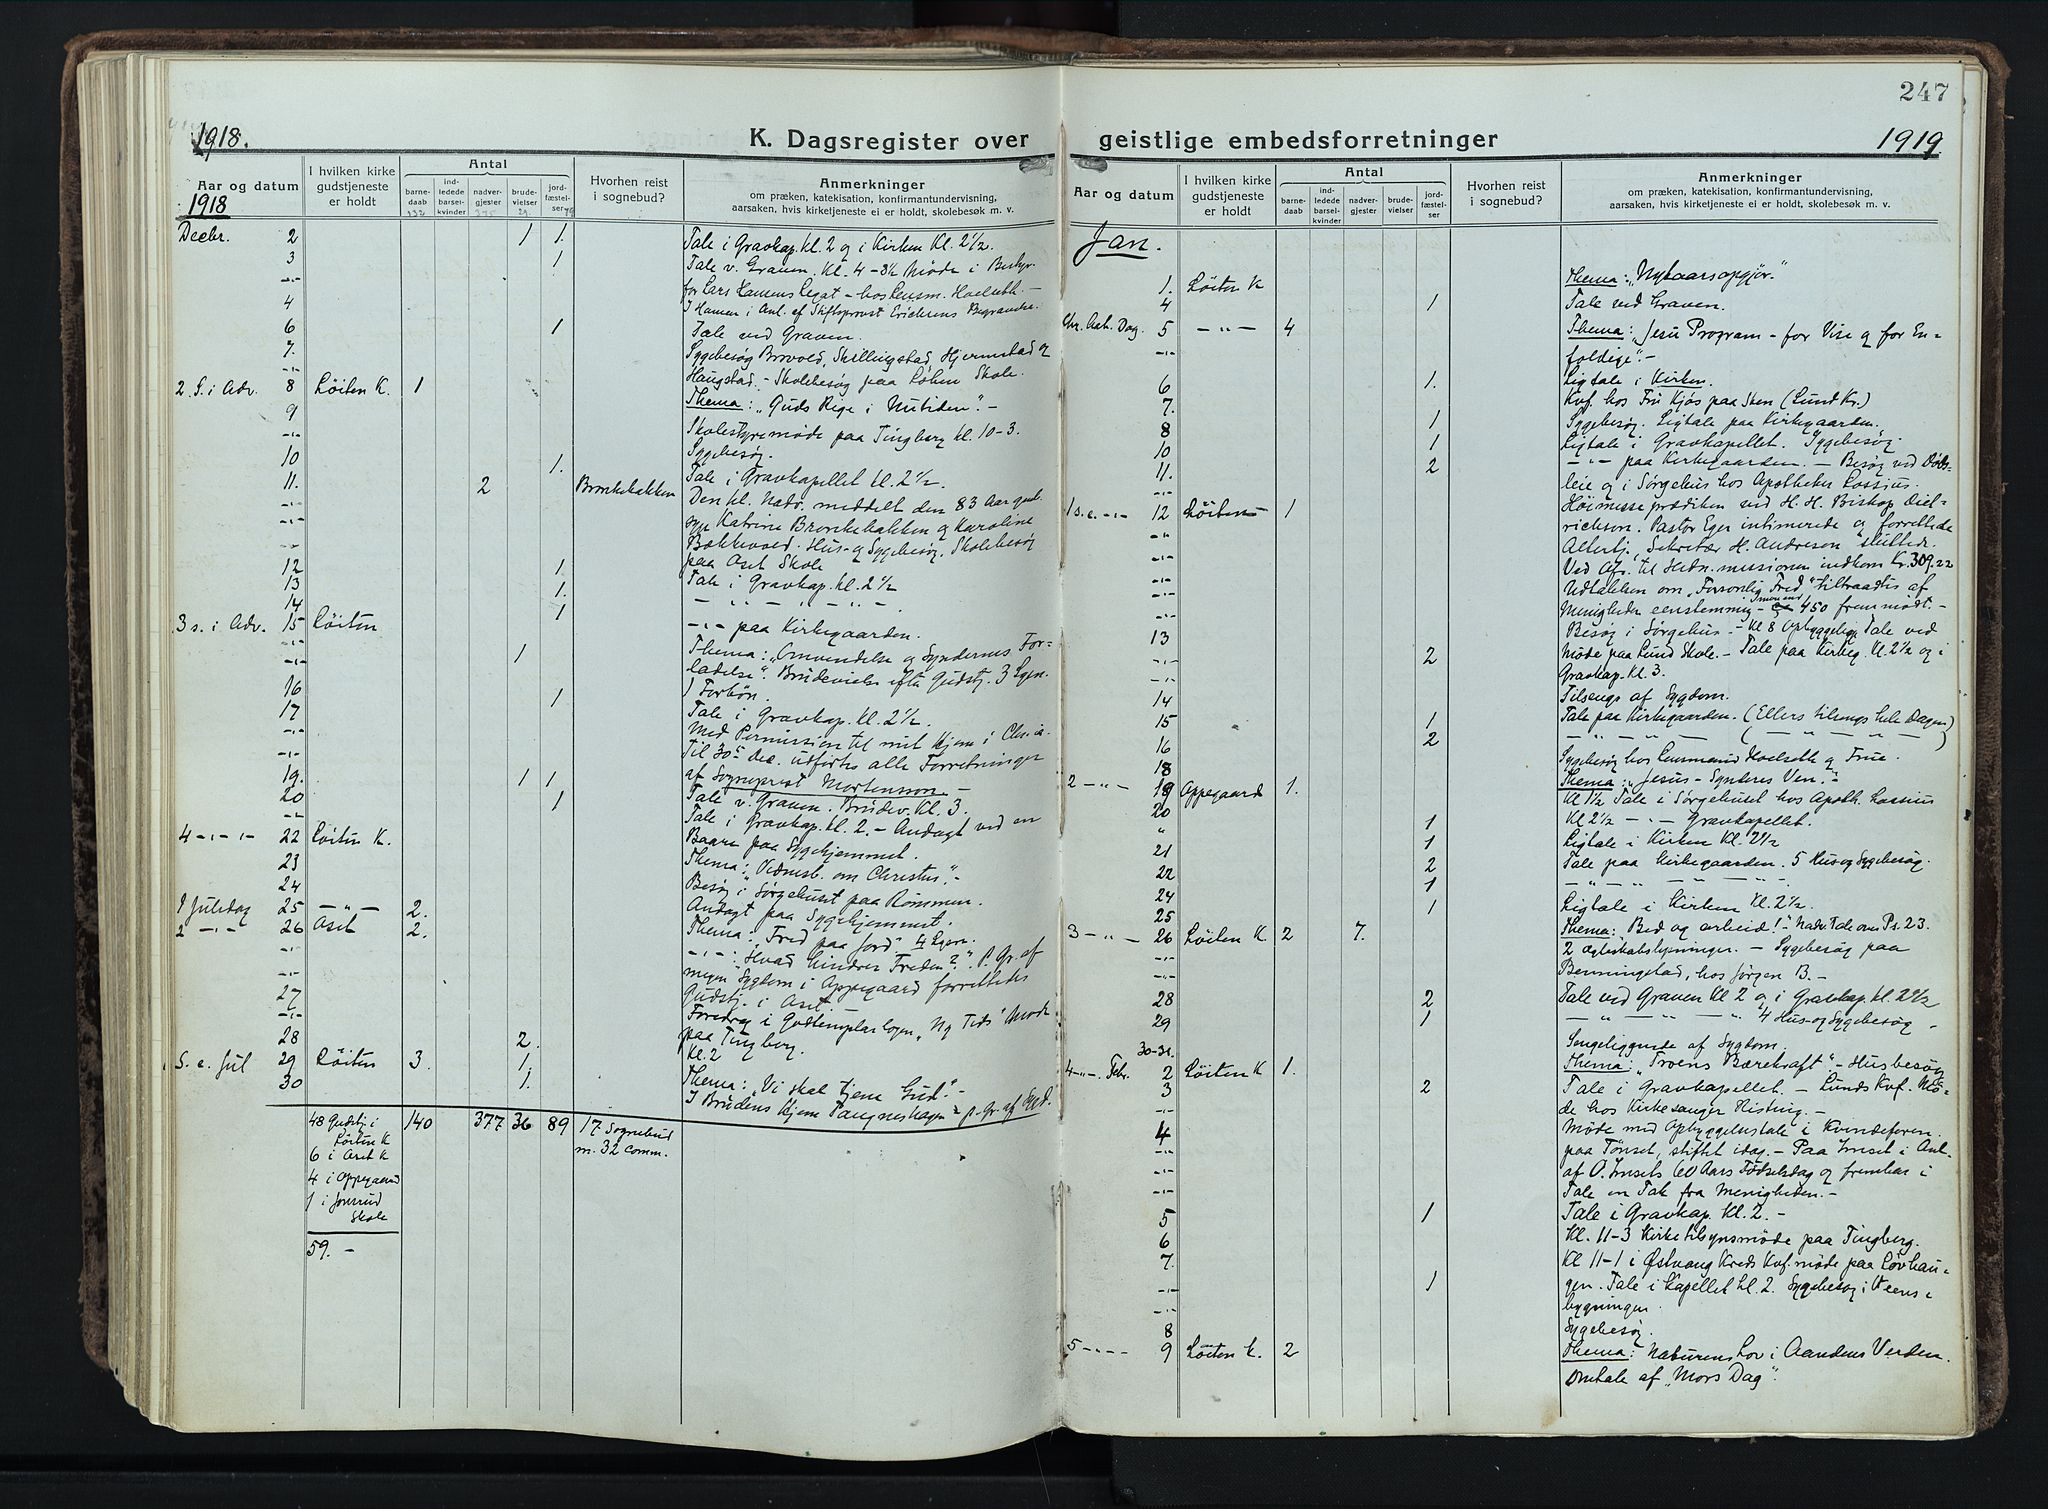 1918.
K. Dagsregister over
Antal
I hvilken kirke gudstjeneste er holdt
Hvorhen reist i sognebud?
Anmerkninger
om præken, katekisation, konfirmantundervisning,
aarsaken, hvis kirketjeneste ei er holdt, skolebesøk m. v.
Aar og datum
1918
barne-daab 132
ind-ledede barsel-kvinder
nadver-gjester 375
brude-vielser 29.
jord-fæstel-ser 79
Decbr. 2 1 1. Tale i Gravkap. Kl. 2 og i Kirken Kl. 2½.
3 1 Tale v. Graven. Kl. 4-8½ Møde i Bestyr.
-"- for Lars Hamens Legat - hos Lensm. Hoelseth. -
4 I Hamar i Anl. af Stiftsprovst Erichsens Begravelse.
6 1 Tale ved Graven.
7. Sygebesøg Brovold, Skillingstad, Hjermstad og
-"- Haugstad. - Skolebesøg paa Løken Skole.
2 S. i Adv. 8 Løiten K. 1 Thema: "Guds Rige i Nutiden". -
9 Skolestyremøde paa Tingberg kl. 10-3.
-"- Sygebesøg.
10 1. Tale i Gravkapellet kl. 2½.
11. 2 Bronkebakken Den hl. Nadv. meddelt den 83 Aar gml.
-"- syge Katrine Bronkebakken og Karoline
-"- Bækkevold. Hus- og Sygebesøg. Skolebesøg
-"- paa Aset Skole
12 1 Tale i Gravkap. kl. 2½
13 1. - " - " - " -
14 1 -"- paa Kirkegaarden.
3 s. i Adv. 15 Løiten Thema: "Omvendelse og Syndernes For-
-"- 1 ladelse". Brudevielse efter Gudstj. 3 Lysn.
-"- 1 Forbøn.
16 1 Tale i Gravkap. kl. 2½.
17 Med Permission til mit Hjem i Chr.ia.
-"- Til 30te Dec. utførtes alle Forretninger
-"- af Sogneprest Mortensson. -
19. 1 1 Tale v. Graven. Brudev. Kl. 3.
20 1 Tale i Gravkap. kl. 2. - Andagt ved en
-"- Baare paa Sygehjemmet.
4 -"-"- 22 Løiten K. Thema: "Vidnesb. om Christus". -
23 Besøg i Sørgehuset paa Rømmen.
24 Andagt paa Sygehjemmet.
1 Juledag 25 -"- 2. Thema: "Fred paa Jord" 4 Lysn.
2 -"- 26 Aset 2. -"-: "Hvad hindrer Freden?". P. Gr. af
-"- megen Sygdom i Oppegaard forrettedes
-"- Gudstj. i Aset. -
27 Foredrag i Godtemplarlogen "Ny Tids" Møde
-"- paa Tingberg.
28 2. Kl. 2
S. e. Jul 29 Løiten 3. 1. Thema: "Vi skal tjene Gud". -
30 1. I Brudens Hjem Tangneshagen p. Gr. af Sygd.
48 Gudstj. i Løiten K 140 377 36 89 17 Sognebud
6 i Aset K m. 32 comm.
4 i Oppegaard
1 i Jønsrud Skole
59. -
247
geistlige embedsforretninger
1919
Antal
I hvilken kirke gudstjeneste er holdt
Hvorhen reist i sognebud?
Anmerkninger
om præken, katekisation, konfirmantundervisning,
aarsaken, hvis kirketjeneste ei er holdt, skolebesøk m. v.
Aar og datum
barne-daab
ind-ledede barsel-kvinder
nadver-gjester
brude-vielser
jord-fæstel-ser
Jan.
1. Løiten K Thema: "Nytaarsopgjør".
4 1 Tale ved Graven.
Chr. Aab. Dag. 5 -"- 4 Thema: "Jesu Program - for Vise og for En-
-"- foldige". -
6 1. Ligtale i Kirken.
7. Kvf. hos Fru Kjøs paa Sken (Lund Kr.)
8 1 Sygebesøg. Ligtale paa Kirkegaarden.
10 1 Ligtale i Gravkapellet. Sygebesøg.
11. 2 -"- paa Kirkegaarden. - Besøg ved Døds-
-"- leie og i Sørgehus hos Apotheker Lossius.
1 s. e. -"- 12 Løiten 1 Høimesseprædiken ved H. H. Biskop Diet-
-"- richson. Pastor Eger intimerede og forrettede
-"- Altertj., Sekretær H. Andresen sluttede.
-"- Ved Ofr. til Hedn. missionen indkom Kr. 309.22
-"- Udtalelsen om "Forsonlig Fred" tiltraadtes af
-"- Menigheden eenstemmig - 450 fremmødt. -
-"- Besøg i Sørgehus. - Kl 8 Opbyggelig Tale ved
13 2 Møde paa Lund Skole. - Tale paa Kirkeg. kl. 2½ og i
-"- Gravkap. Kl. 3.
14 Tilsengs af Sygdom.
15 1 Tale paa Kirkegaarden. (Ellers tilsengs hele Dagen)
16 2 - " - " - ( - " - " - )
18 Sygebesøg hos Lensmand Hoelseth og Frue.
2 -"- 19 Oppegaard 1. Thema: "Jesus - Synderes Ven". -
20 Kl 1½ Tale i Sørgehuset hos Apoth. Lossius
" 1 Kl 2½ -"- Gravkapellet.
21 1 Ligtale i Kirken Kl. 2½
22 2 Tale paa Kirkegaarden. 5 Hus og Sygebesøg.
24 1 - " - " - " -
25 1 Ligtale i Kirken Kl. 2½.
3 -"- 26 Løiten K. 2 7. Thema: "Bed og arbeid!" - Nadv. Tale over Ps. 23.
-"- 2 Ægteskabslysninger. - Sygebesøg paa
-"- Benningstad, hos Jørgen B. -
28 2 Tale ved Graven Kl 2 og i Gravkap. Kl. 2½
29 1 - " - " - 4 Hus- og Sygebesøg -
30-31. Sengeliggende af Sygdom.
4 -"-. Febr. 2 Løiten K 1. Thema: "Troens Bærekraft" - Husbesøg
3 2 Tale i Gravkapellet. - Lunds Kvf. Mø-
-"- de hos Kirkesanger Risting. -
4 Møde med Opbyggelsestale i Kvindeforen.
-"- paa Tønset, stiftet idag. - Paa Imset i Anl.
-"- af O. Imsets 60 Aars Fødselsdag og frembar i
-"- Tale en Tak fra Menigheden. -
5 1 Tale i Gravkap. Kl. 2. -
6 Kl. 11-3 Kirketilsynsmøde paa Tingberg.
7. Kl 11-1 i Østvang Kreds Kvf. møde paa Løvhau-
-"- 1 gen. Tale i Kapellet kl. 2. Sygebesøg i Veens-
-"- bygningen.
8 Sygebesøg.
5 -"- 9 Løiten K. 2 Thema: Naturens Lov i Aandens Verden.
Omtale af "Mors Dag".